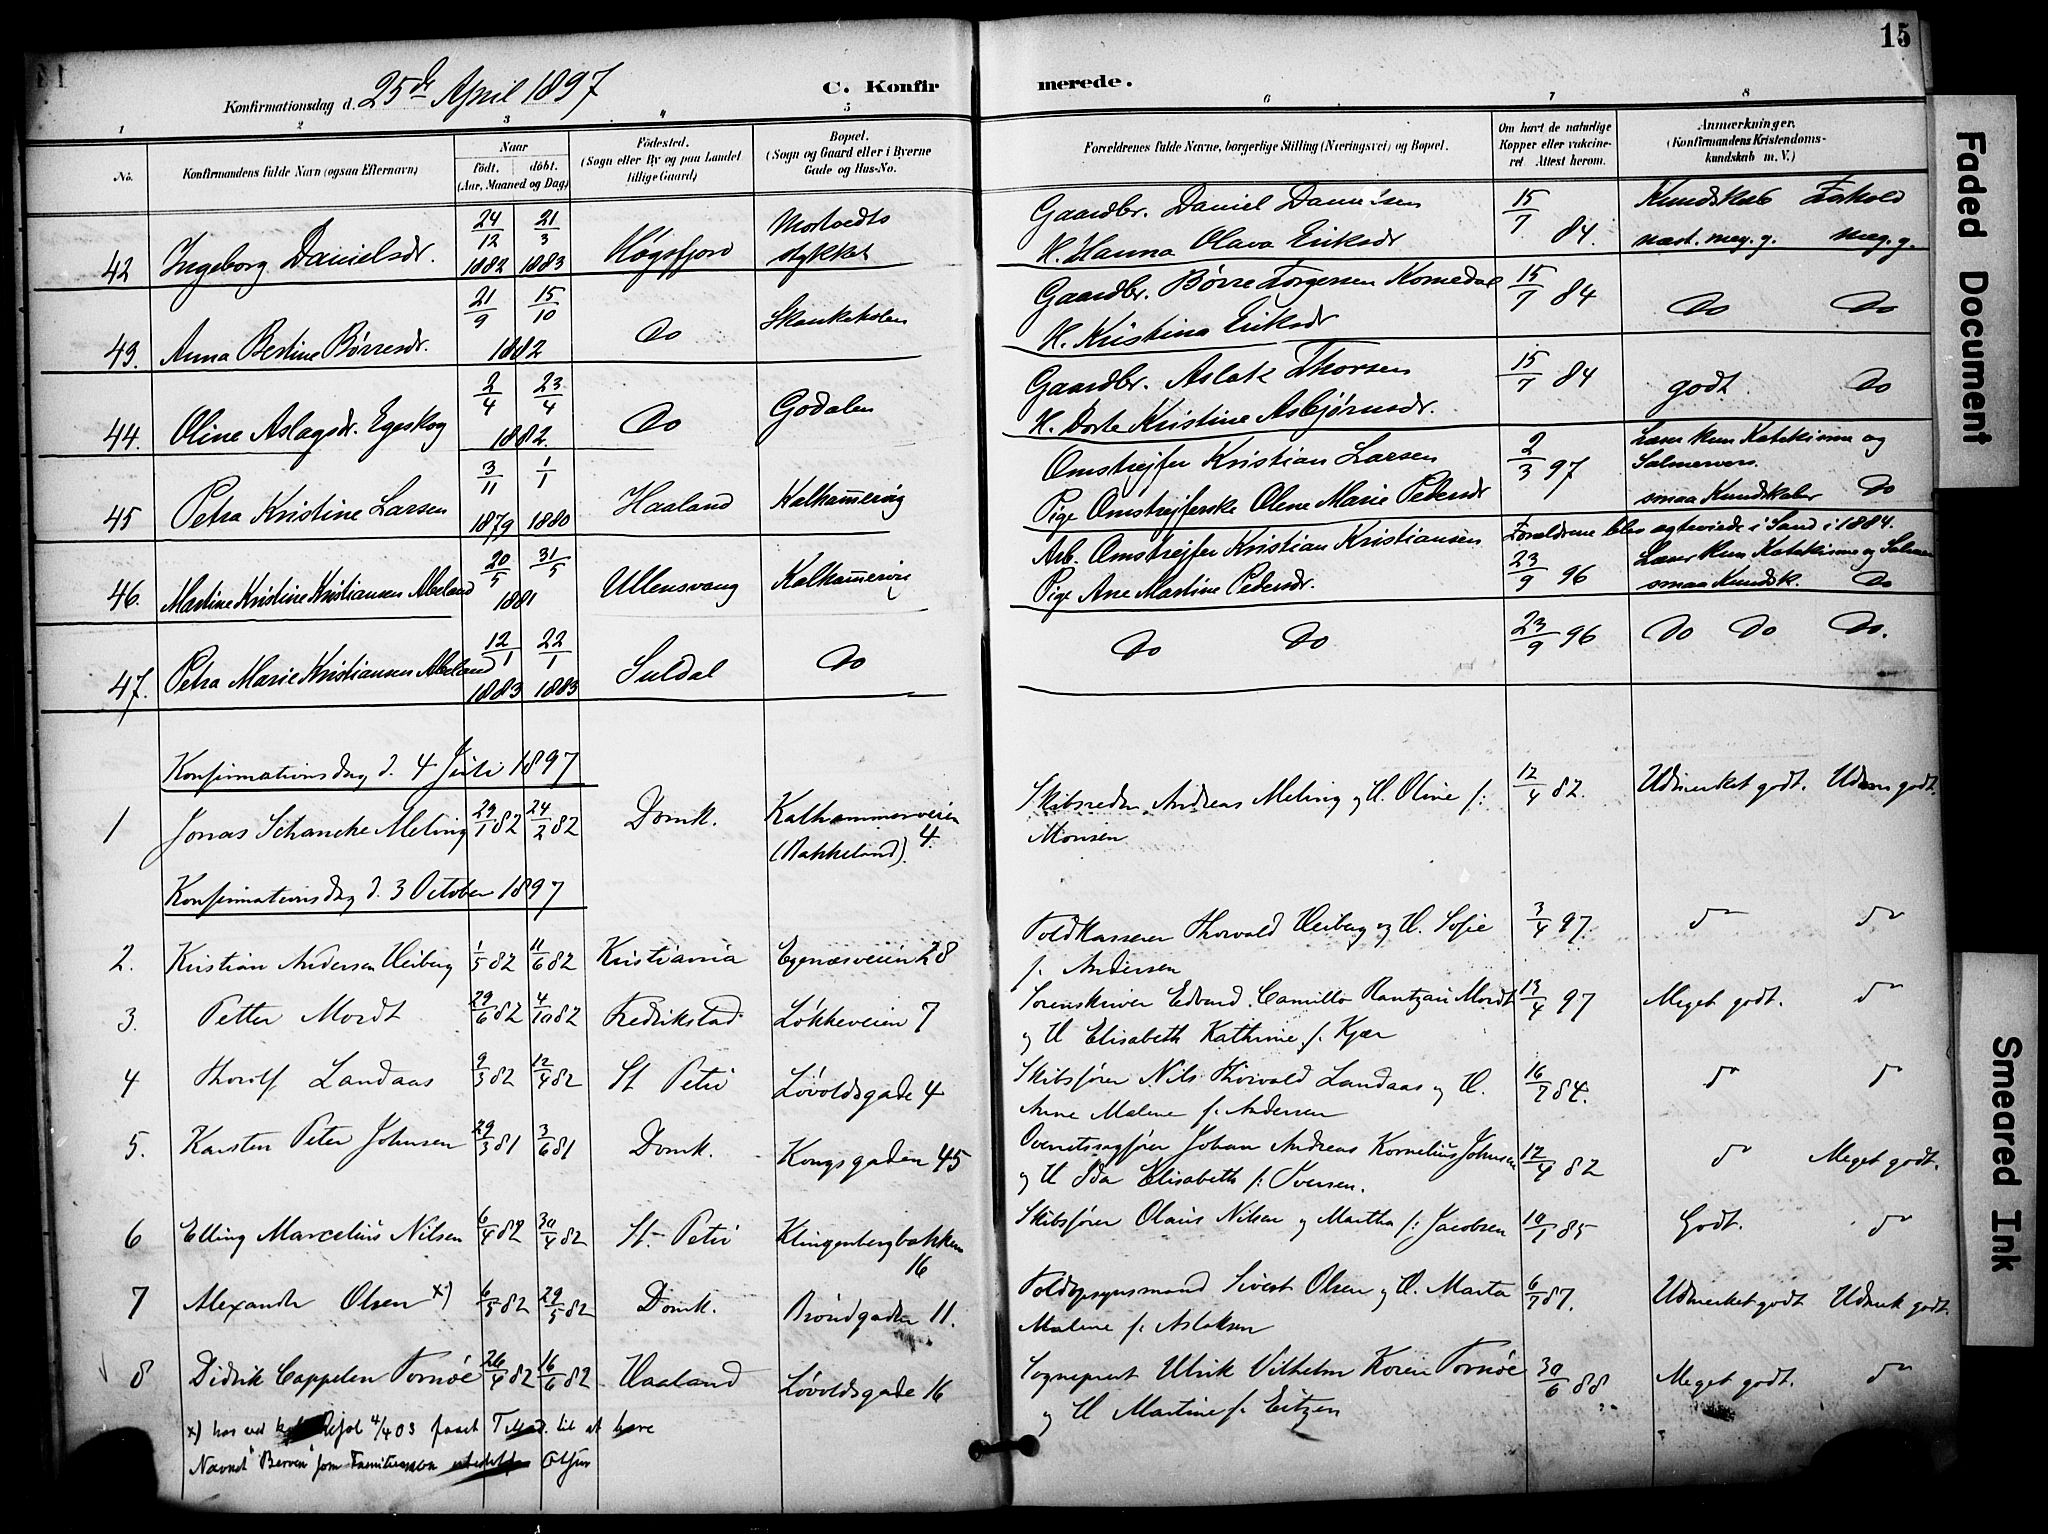 15
Konfirmationsdag d. 25de April 1897
C. Konfirmerede.
1 2 3 4 5 6 7 8
No. Konfirmandens fulde Navn (ogsaa Efternavn) Naar født. døbt. (Aar, Maaned og Dag) Fødested. (Sogn eller By og paa Landet tillige Gaard) Bopæl. (Sogn og Gaard eller i Byerne Gade og Hus-No. Forældrenes fulde Navne, borgerlige Stilling (Næringsvei) og Bopæl. Om havt de naturlige Kopper eller vaccineret. Attest herom. Anmærkninger. (Konfirmandens Kristendomskundskab m. V.)
Kundskab Forhold
42 Ingeborg Danielsdr. 24/12 1882 21/3 1883 Høgsfjord stykket Gaardbr. Daniel Danielsen 15/7 84. næst. meg. g. meg. g.
H. Hanna Olava Eriksdr
43. Anna Bertine Børresdr. 21/9 15/10 1882 Do Gaardbr. Børre Torgersen Komedal 15/7 84 Do Do
H. Kristina Eriksdr
44. Oline Aslagsdr. Egeskog 2/4 23/4 1882. Do Godalen Gaardbr. Aslak Thorsen 15/7 84 godt. Do
H. Dorte Kristine Asbjørnsdr.
45 Petra Kristine Larsen 3/11 1879 1/1 1880 Haaland Kalhammervig Omstrejfer Kristian Larsen 2/3 97 Læser kun Katekisme og Salmevers.
Pige Omstrejferske Olene Marie Pedersdr smaa Kundskaber Do
46. Martine Kristine Kristiansen Aleland 20/5 31/5 1881 Ullensvang Kalhammervig Arb. Omstrejfer Kristian Kristiansen Forældrene blev egteviede i Sand i 1884.
Pige Ane Martine Pedersdr. 23/9 96 Læser kun Katekisme og Salmer smaa Kundsk. Do
47. Petra Marie Kristiansen Aleland 12/1 1883 22/1 1883 Suldal Do Do Do 23/9 96 Do Do Do.
Konfirmationsdag d. 4 Juli 1897
1 Jonas Schancke Meling 29/1 82 24/2 82 Domk. Kalhammerveien 4. (Bakkeland) Skibsreder Andreas Meling og H. Oline f: 12/4 82. Udmerket godt. Udm godt.
Monsen
Konfirmationsdag d. 3 October 1897
2. Kristian Andersen Heiberg 1/5 82 11/6 82 Kristiania Egenæsveien 28 Toldkasserer Thorvald Heiberg og H. Sofie 3/4 97. do do
f. Andersen
3. Petter Mordt 29/6 82 4/10 82 Fredrikstad Løkkeveien 7 Sorenskriver Edvard Camillo Rantzau Mordt 13/4 97 Meget godt. do
og H Elisabeth Kathrine f. Kjær
4 Thorolf Landaas 9/3 82 12/4 82 St Petri Løvoldsgade 4 Skibsfører Nils Thorvald Landaas og H. 16/7 84. do do
Anne Malene f. Andersen
5. Karsten Peter Johnsen 29/3 81 3/6 81 Domk. Kongsgaden 45 Overretssagfører Johan Andreas Kornelius Johnsen 12/4 82 do Meget godt.
og H Ida Elisabeth f: Iversen.
6 Elling Marcelius Nilsen 6/4 82 30/4 82 St. Petri Klingenbergbakken 16 Skibsfører Olaus Nilsen og Martha f: Jacobsen 85 Godt. do
7 Alexander Olsen x) 6/5 82 29/5 82 Domk. Brøndgaden 11. Toldopsynsmand Sivert Olsen og H. Marta 6/7 87. Udmerket godt Udmerk godt.
Malene f. Aslaksen
8 Didrik Cappelen Tornøe 26/4 82 16/6 82 Haaland Løvoldsgade 16 Sogneprest Ulrik Vilhelm Koren Tornøe 30/6 88 Meget godt. do
og H Martine f. Eitzen
x) har ved 4/4 03 faaet Tillad. til at bære
Navnet "Berven" som Familienavn
Faded Document
Smeared Ink